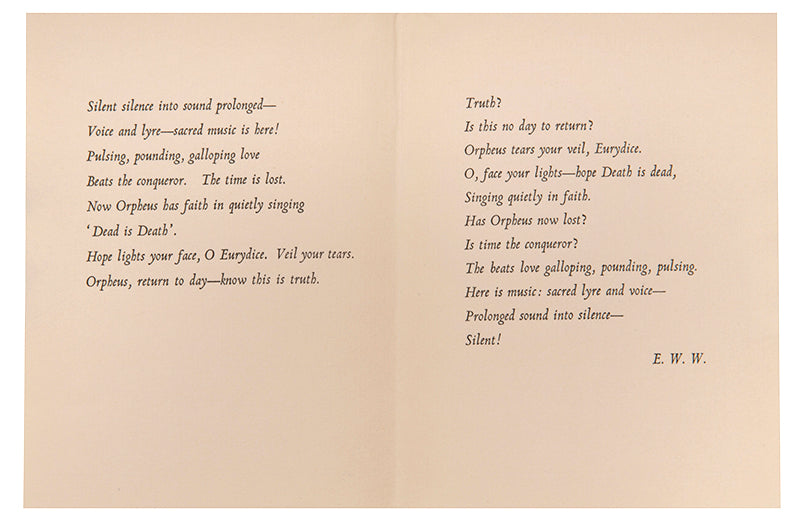 Silent silence into sound prolonged—
Voice and lyre—sacred music is here!
Pulsing, pounding, galloping love
Beats the conqueror. The time is lost.
Now Orpheus has faith in quietly singing
‘Dead is Death’.
Hope lights your face, O Eurydice. Veil your tears.
Orpheus, return to day—know this is truth.
Truth?
Is this no day to return?
Orpheus tears your veil, Eurydice.
O, face your lights—hope Death is dead,
Singing quietly in faith.
Has Orpheus now lost?
Is time the conqueror?
The beats love galloping, pounding, pulsing.
Here is music: sacred lyre and voice—
Prolonged sound into silence—
Silent!
E. W. W.